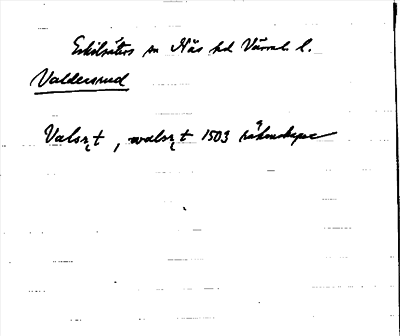 Eskilsäters sn Näs hd Värml. l.
Valdersrud
Valsrt, walsrt 1503 räkenskaper